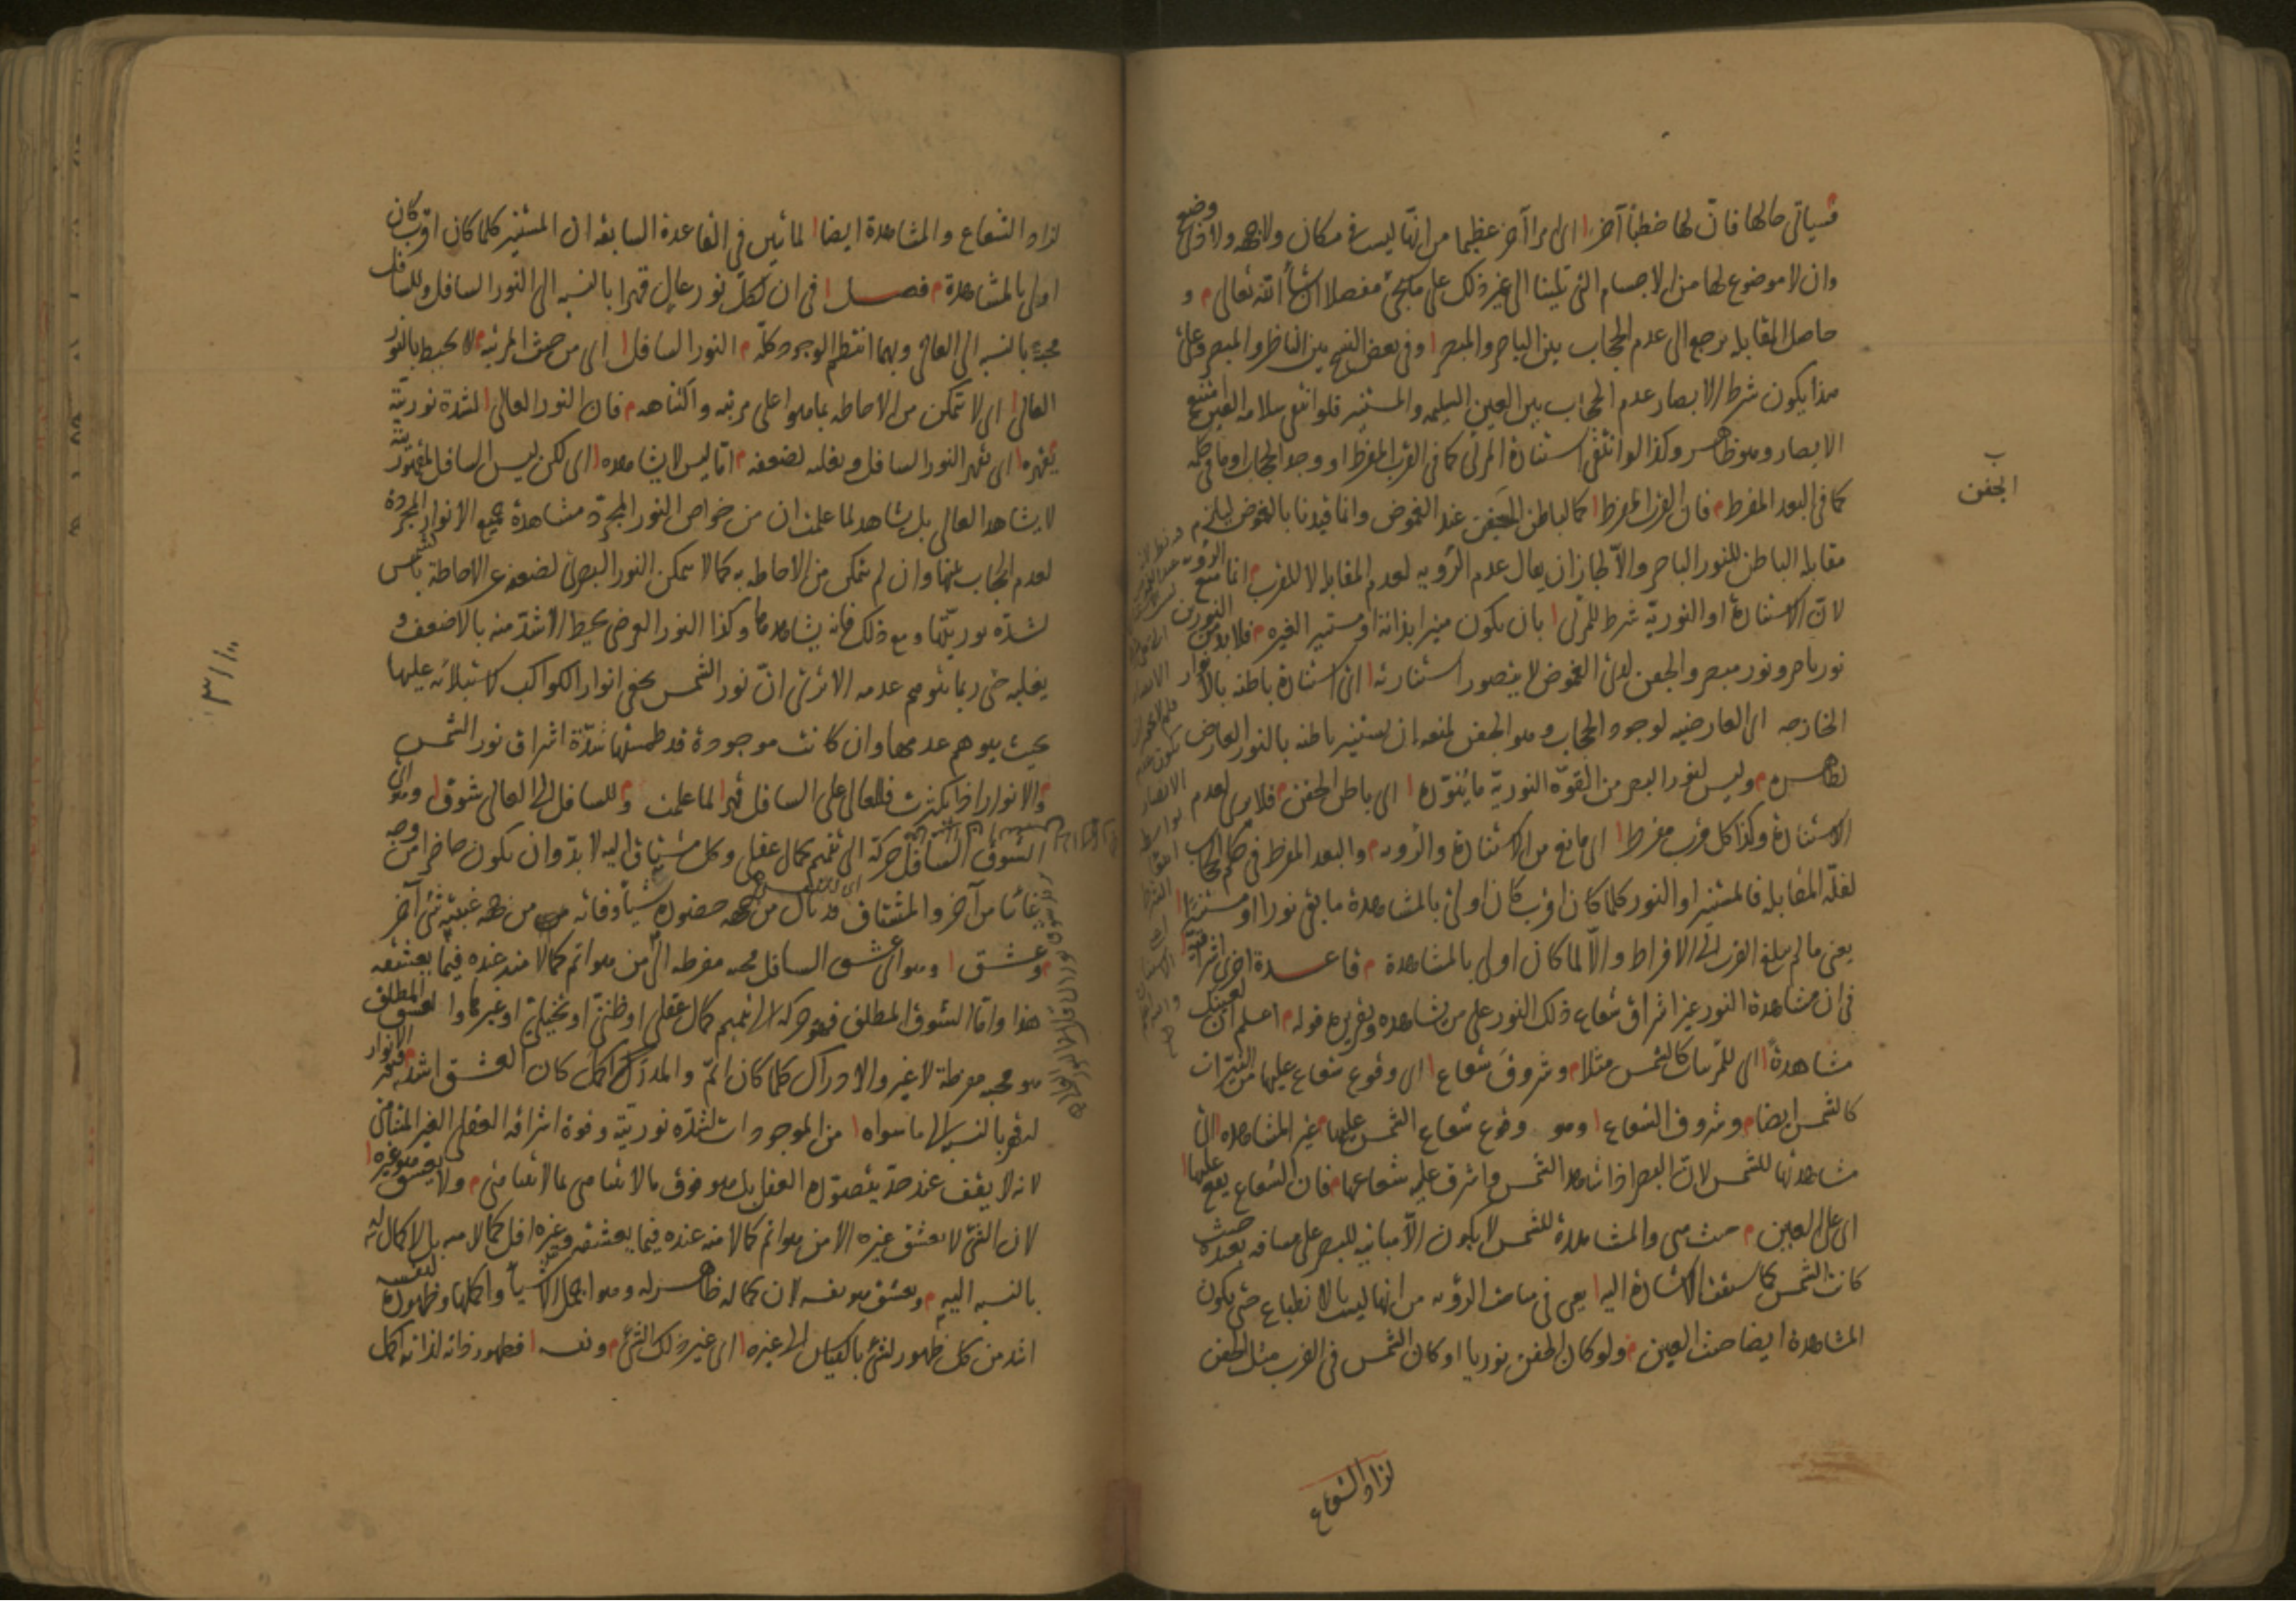 فسياتي حالها فان لها خطبا آخر اى امرا آخر عظيما من انها ليست فى مكان ولا جهة ولا وضع
وان لا موضوع لها من الاجسام التى تلينا الى غير ذلك على ما يجئ مفصلا ان شاء الله تعالى و
حاصل المقابله يرجع الى عدم الحجاب بين الباصر والمبصر وفى بعض النسخ بين الناظر والمبصر وعلى
هذا يكون شرط الابصار عدم الحجاب بين العين السليمه والمستنير فلو انتفى سلامه العين امتنع
الابصار وهو ظاهر وكذا لو انتفى استنارة المرئى كما فى القرب المفرط او وجد الحجاب او ما فى حكمه
كما فى البعد المفرط فان القرب المفرط كما لباطن الجفن عند الغموض وانما قيدنا بالغموض ليلزم
مقابلة الباطن للنور الباصر والا لجاز ان يقال عدم الرؤيه لعدم المقابله لا للقرب انما منع الرؤية
لان الاستنارة او النورية شرط للمرئى بان يكون منيرا بذاته او مستنير الغيره فلا بد من النورين
نور باصر ونور مبصر والجفن لدى الغموض لا يتصور استنارته اى استنارة باطنه بالانوار
الخارجه اى العارضيه لوجود الحجاب وهو الجفن لمنعه ان يستنير باطنه بالنور العارض
لظاهره وليس لنور البصر من القوة النورية ما ينوره اى باطن الجفن فلا يرى لعدم
الاستنارة وكذا كل قرب مفرط اى مانع من الاستنارة والرويه والبعد المفرط فى حكم الحجاب
لقلة المقابله فالمستنير او النور كلما كان اقرب كان اولى بالمشاهدة ما بقى نورا او مستنيرا
يعنى ما لم يبلغ القرب الى الافراط والا لما كان اولى بالمشاهدة قاعدة اخرى اشراقية
فى ان مشاهدة النور غير اشراق شعاع ذلك النور على من يشاهده وتقريره قوله اعلم ان لعينك
مشاهدة اى للمرئيات كالشمس مثلا وشروق شعاع اى وقوع شعاع عليها من النيرات
كالشمس ايضا وشروق الشعاع وهو وقوع شعاع الشمس عليها غير المشاهده اى
مشاهدتها للشمس لان البصر اذا شاهد الشمس واشرق عليه شعاعها فان الشعاع يقع عليها
اى على العين حيث هى والمشاهدة للشمس لا يكون الا مباينه للبصر على مسافه بعيدة حيث
كانت الشمس كما سبقت الاشارة اليه يعنى فى مباحث الرؤيه من انها ليست بالانطباع حتى يكون
المشاهدة ايضا حيث العين ولو كان الجفن نوريا او كان الشمس فى القرب مثل الجفن
لزاد الشعاع
الجفن
لزاد الشعاع والمشاهدة ايضا لما تبين فى القاعدة السابقه ان المستنير كلما كان اقرب كان
اولى بالمشاهدة فصل فى ان لكل نور عال قهرا بالنسبه الى النور السافل وللسافل
محبة بالنسبه الى العالى وبهما انتظم الوجود كله النور السافل اى من حيث المرتبه لا يحيط بالنور
العالى اى لا يتمكن من الاحاطه بما هو اعلى مرتبه واكتناهه فان النور العالى لشدة نوريته
يقهره اى يقهر النور السافل ويغلبه لضعفه اما ليس لا يشاهده اى لكن ليس السافل لمقهوريته
لا يشاهد العالى بل يشاهد لما علمت ان من خواص النور المجرد مشاهدة جميع الانوار المجردة
لعدم الحجاب بينها وان لم يتمكن من الاحاطه به كما لا يتمكن النور البصرى لضعفه عن الاحاطة بالشمس
لشدة نوريتها ومع ذلك فانه يشاهدها وكذا النور العرضى يحيط الاشد منه بالاضعف و
يغلبه حتى ربما يتوهم عدمه الا ترى ان نور الشمس يخفى انوار الكواكب لاستيلائه عليها
بحيث يوهم عدمها وان كانت موجودة قد طمستها شدة اشراق نور الشمس
والانوار اذا كثرت فللعالى على السافل قهر لما علمت وللسافل الى العالى شوق وهو اى
الشوق السافل حركة الى تتميم كمال عقلى وكل مشتاق اليه لا بد وان يكون حاضرا من وجه
غائبا من آخر والمشتاق قد نال من جهة حضوره شيئا وفاته من جهه غيبته شئ آخر
وعشق وهو اى عشق السافل محبه مفرطه الى من هو اتم كمالا منه عنده فيما يعشقه
هذا واما الشوق المطلق فهو حركة الى تتميم كمال عقلى او ظنى او تخيلى او غيرها والعشق المطلق
هو محبه مفرطة لا غير والادراك كلما كان اتم والمدرك اكمل كان العشق اشد فنور الانوار
له قهر بالنسبه الى ما سواه من الموجودات لشدة نوريته وقوة اشراقه العقلى الغير المتناهى
لانه لا يقف عند حد يتصوره العقل بل هو فوق ما لا يتناهى بما لا يتناهى ولا يعشق هو غيره
لان الشئ لا يعشق غيره الا من هو اتم كمالا منه عنده فيما يعشقه وغيره اقل كمالا منه بل لا كمال له
بالنسبه اليه ويعشق هو نفسه لان كماله ظاهر له وهو اجمل الاشياء واكملها وظهوره لنفسه
اشد من كل ظهور لشئ بالقياس الى غيره اى غير ذلك الشئ ونفسه فظهور ذاته لذاته اكمل